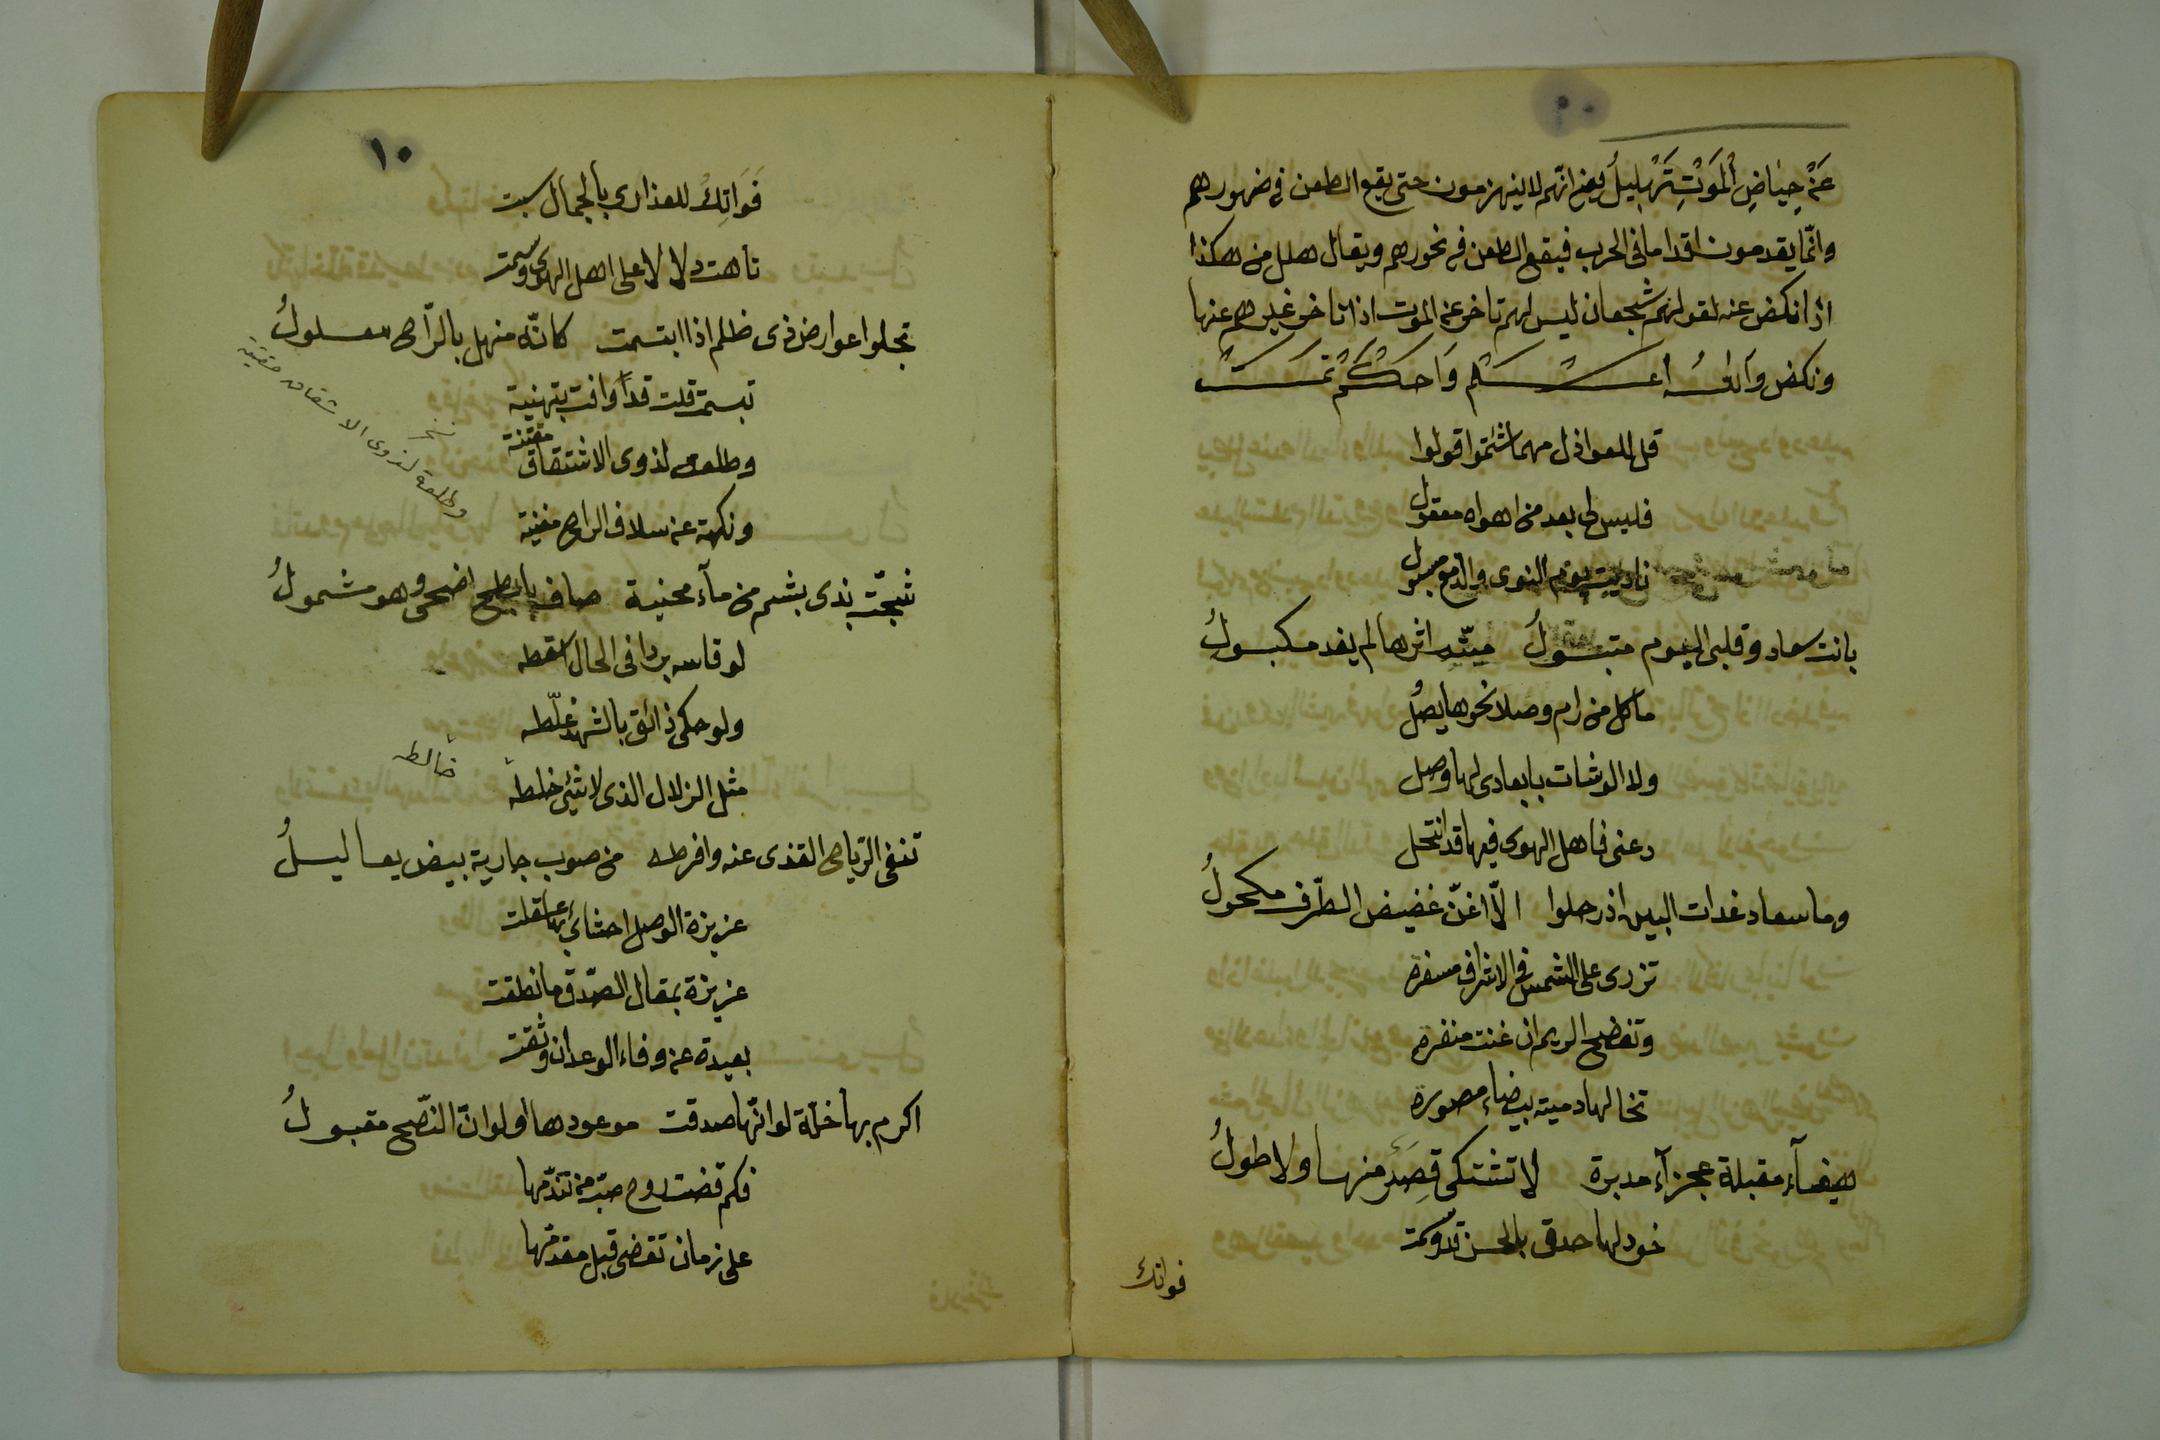 عَنْ حِيَاضِ ٱلمَوْتِ تَهْلِيلُ يعني انّهم لا ينهزمون حتى يقع الطعن في ضهورهم
وانّما يقدمون اقداما في الحرب فيقع الطعن في نحورهم ويقال هلل من هكذا
اذا نكض عنه لقولهم شجعان ليس لهم تاخر عن الموت اذا تاخر غيرهم عنها
ونكض والله أعلم وأحكم تمت
قل للعواذل مهما شئتموا قولوا
فليس لي بعد من اهواه معقول
ناديت يوم النوى والدمع مسبول
بانت سعاد وقلبي اليوم متبولُ متيّم اثرها لم يفد مكبولُ
ما كل من رام وصلا نحوها يصلُ
ولا الوشات بابعادى لها وصل
دعنى فاهل الهوى فيها قد انتحل
وما سعاد غدات البين اذ رحلوا الاّ اغنّ غضيض الطّرف مكحولُ
تزرى على الشمس في الاشراف مسفرة
وتفضح الريم ان غنت منفرة
تخالها دمية بيضاء مصورة
هيفآء مقبلة عجزآء مدبرة لا تشتكى قِصَرُ منها ولا طولُ
خود لها حدق بالحسن قد وسمت
فواتك
١٠
فَوَاتِكُ للعذارى بالجمال سبت
تاهت دلالا على اهل الهوى وسمت
تجلوا عوارض ذى ظلم اذا ابتسمت كانّه منهل بالرّاح معلولُ
تبسمت قلت قداً وافت بتهنية
وطلعة لذوى الاشتقاق مفتنة
وطلعة لذوى الاشقان
ونكهة عن سلاف الراح مغنية
شجّت بذى بشم من مآء محنية صاف بابطح اضحى وهو مشمولُ
لو قاسه بردا في الحال اسقطه
ولو حكى ذائق بالشهد غلّطه
مثل الزلال الذى لا شئ خلطه
خالطه
تنفى الرّياح القذى عنه وافرطه من صوب جارية بيض يعاليلُ
عزيزة الوصل احشائي بها علقت
عزيزة بمقال الصّدق ما نطقت
بعيدة عن وفاء الوعد ان وثقت
اكرم بها خلّة لو انّها صدقت موعودها اولو انّ النّصح مقبولُ
فكم قضت روح صبّ من تندّمها
على زمان تقضى قبل مقدمها